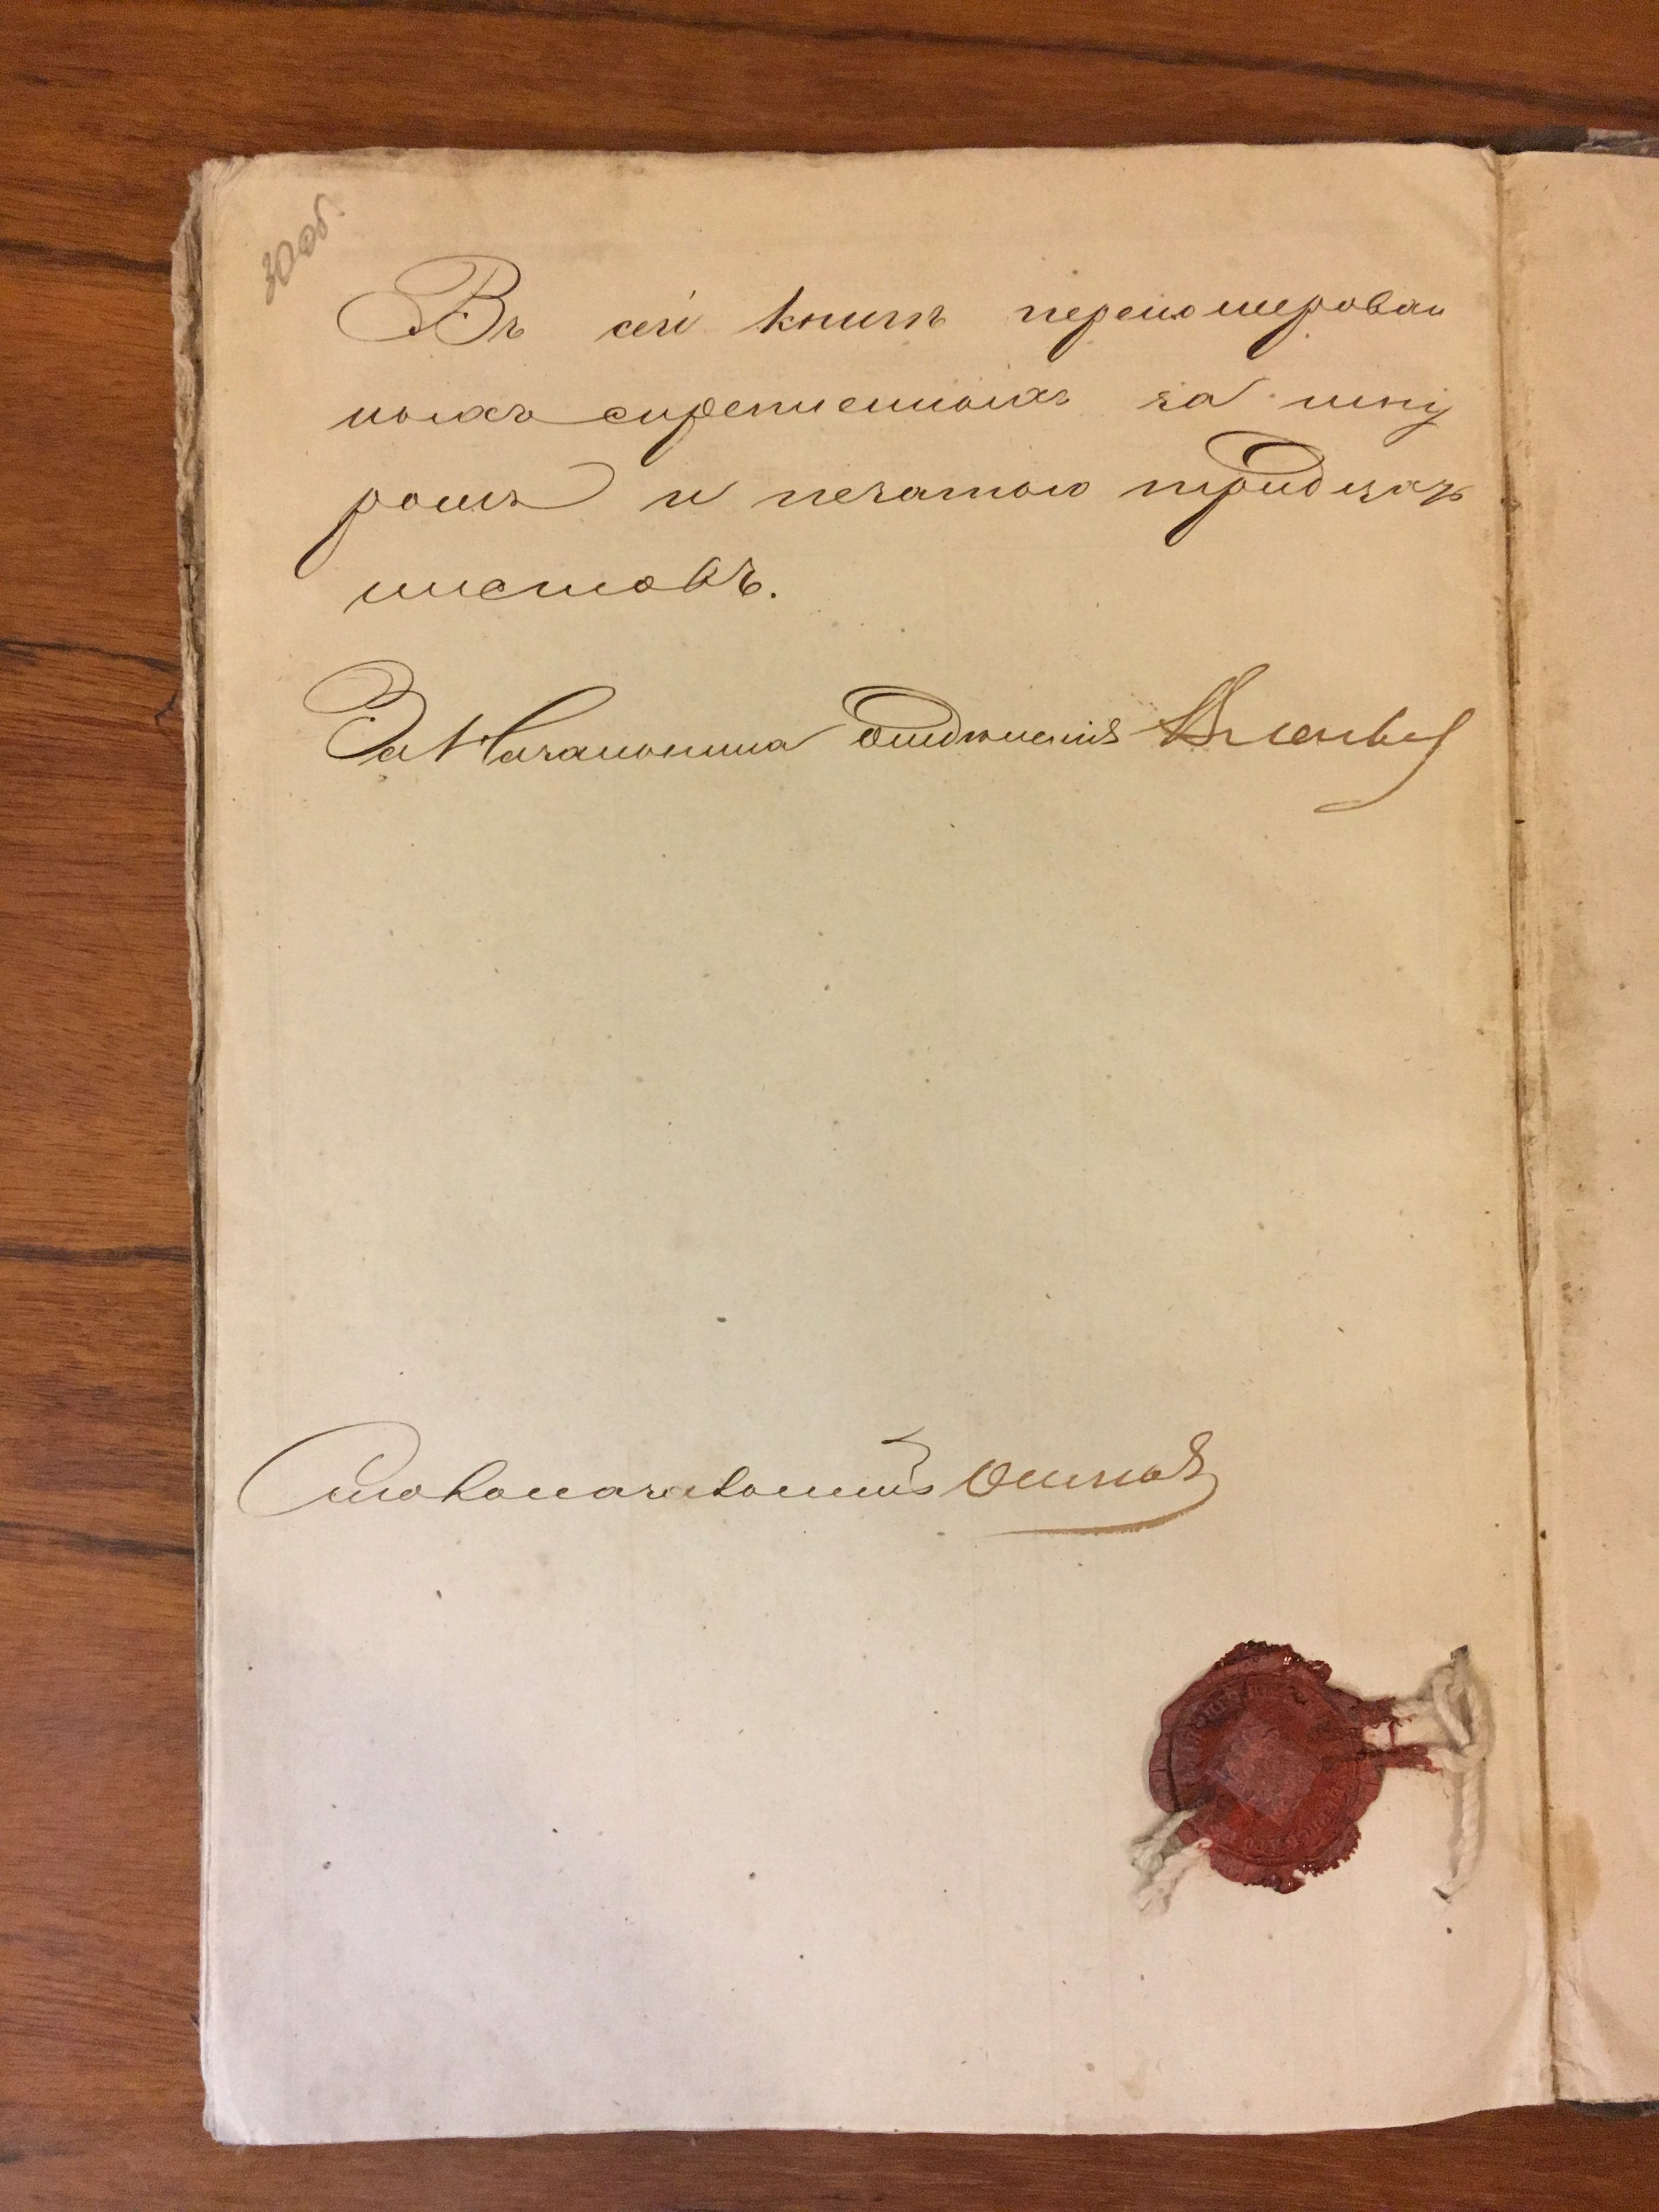 30 об.
Въ сей книгѣ перенумерован
ныхъ скрепленныхъ за шну
ромъ и печатью тридцать
листовъ.
За Начальника Отдѣленія
Столоначальникъ